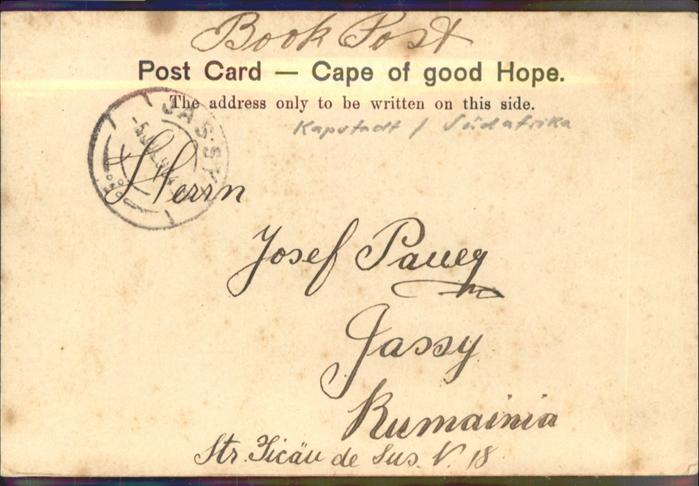 Book Post
Post Card — Cape of good Hope.
The address only to be written on this side.
Kapstadt / Südafrika
JASSY
Herrn
Josef
Jassy
Rumainia
Str. Ticău de Sus. N. 18